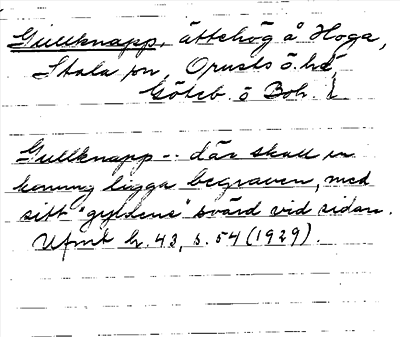 Gullknapp, ättehög å Hoga,
Stala sn, Orusts ö. hd,
Göteb. o Boh. l.
Gullknapp -- där skall en
konung ligga begraven, med
sitt "gyldene" svärd vid sidan.
h. 43, s. 54 (1929).